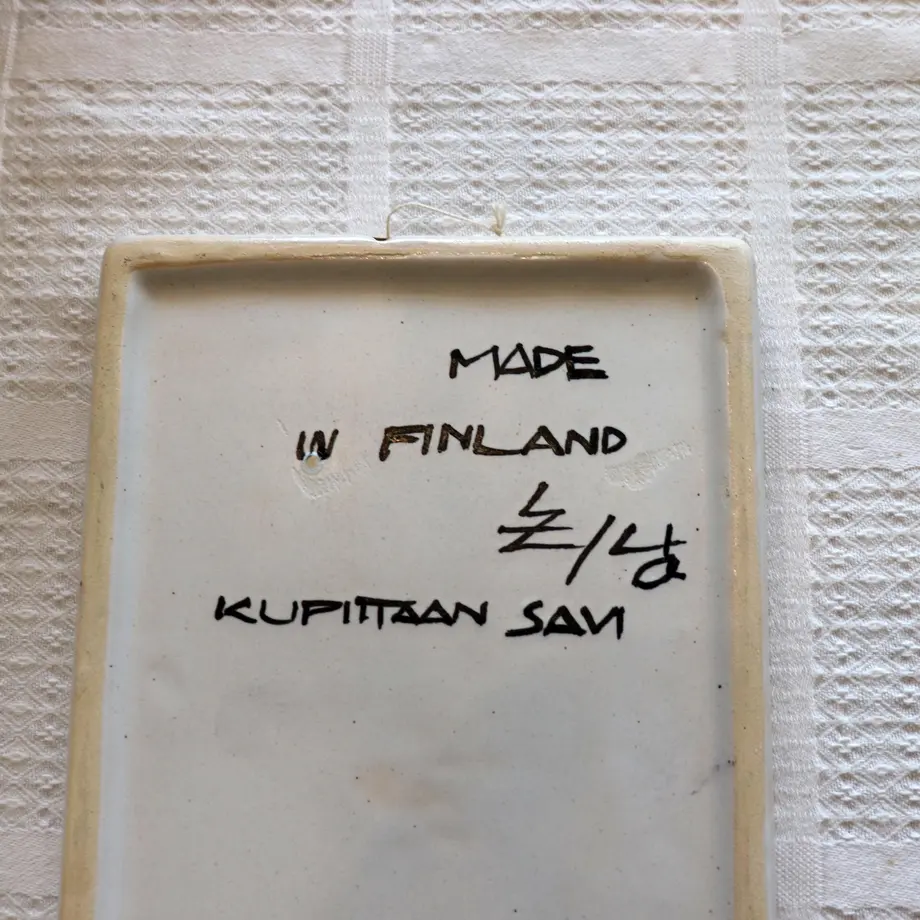 MADE
IN FINLAND
KUPITTAAN SAVI